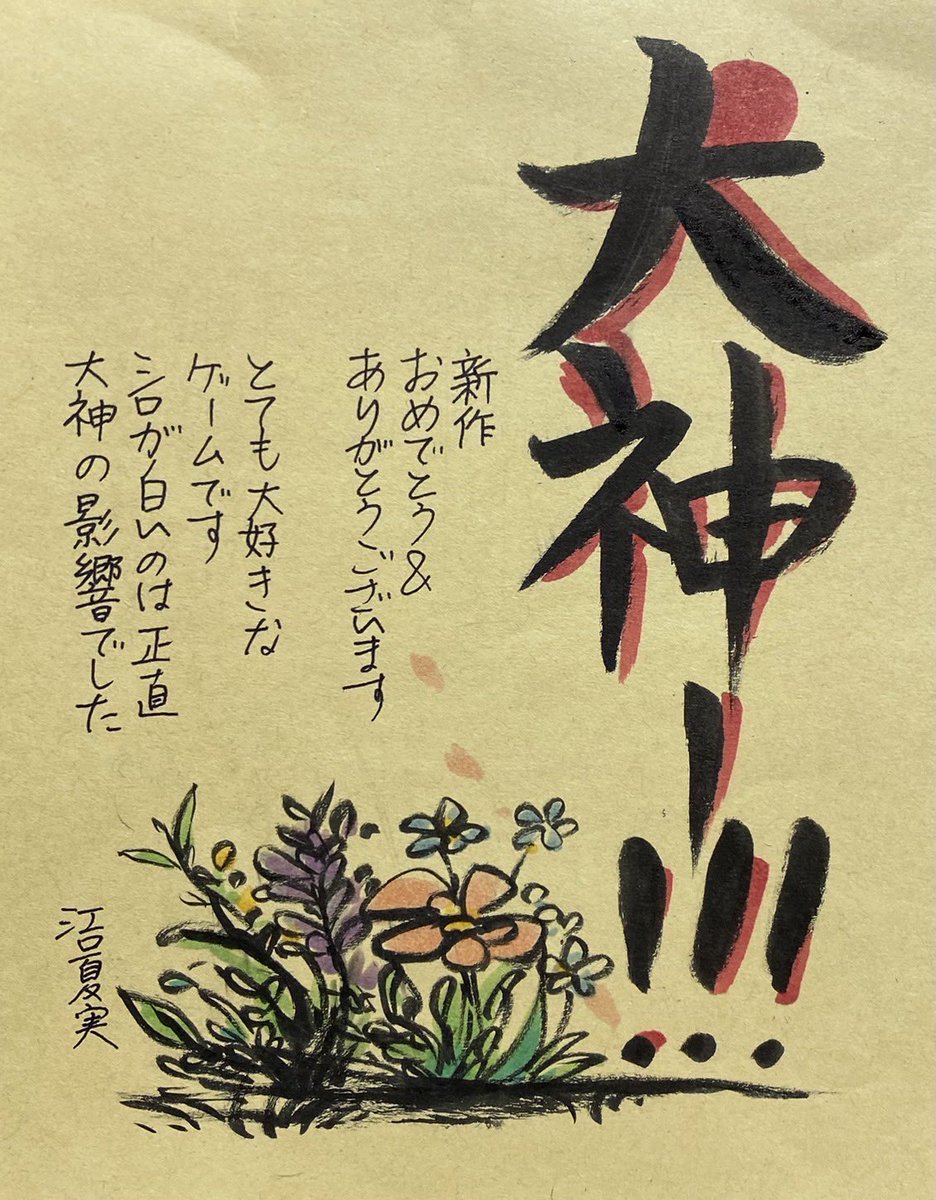 大神!!!!
新作
おめでとう&
ありがとうございます
とても大好きな
ゲームです
シロが白いのは正直
大神の影響でした
江口夏実